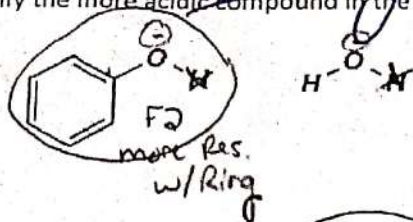 ify the more acidic compound in the
O H
H O H
F2
more Res.
w/Ring